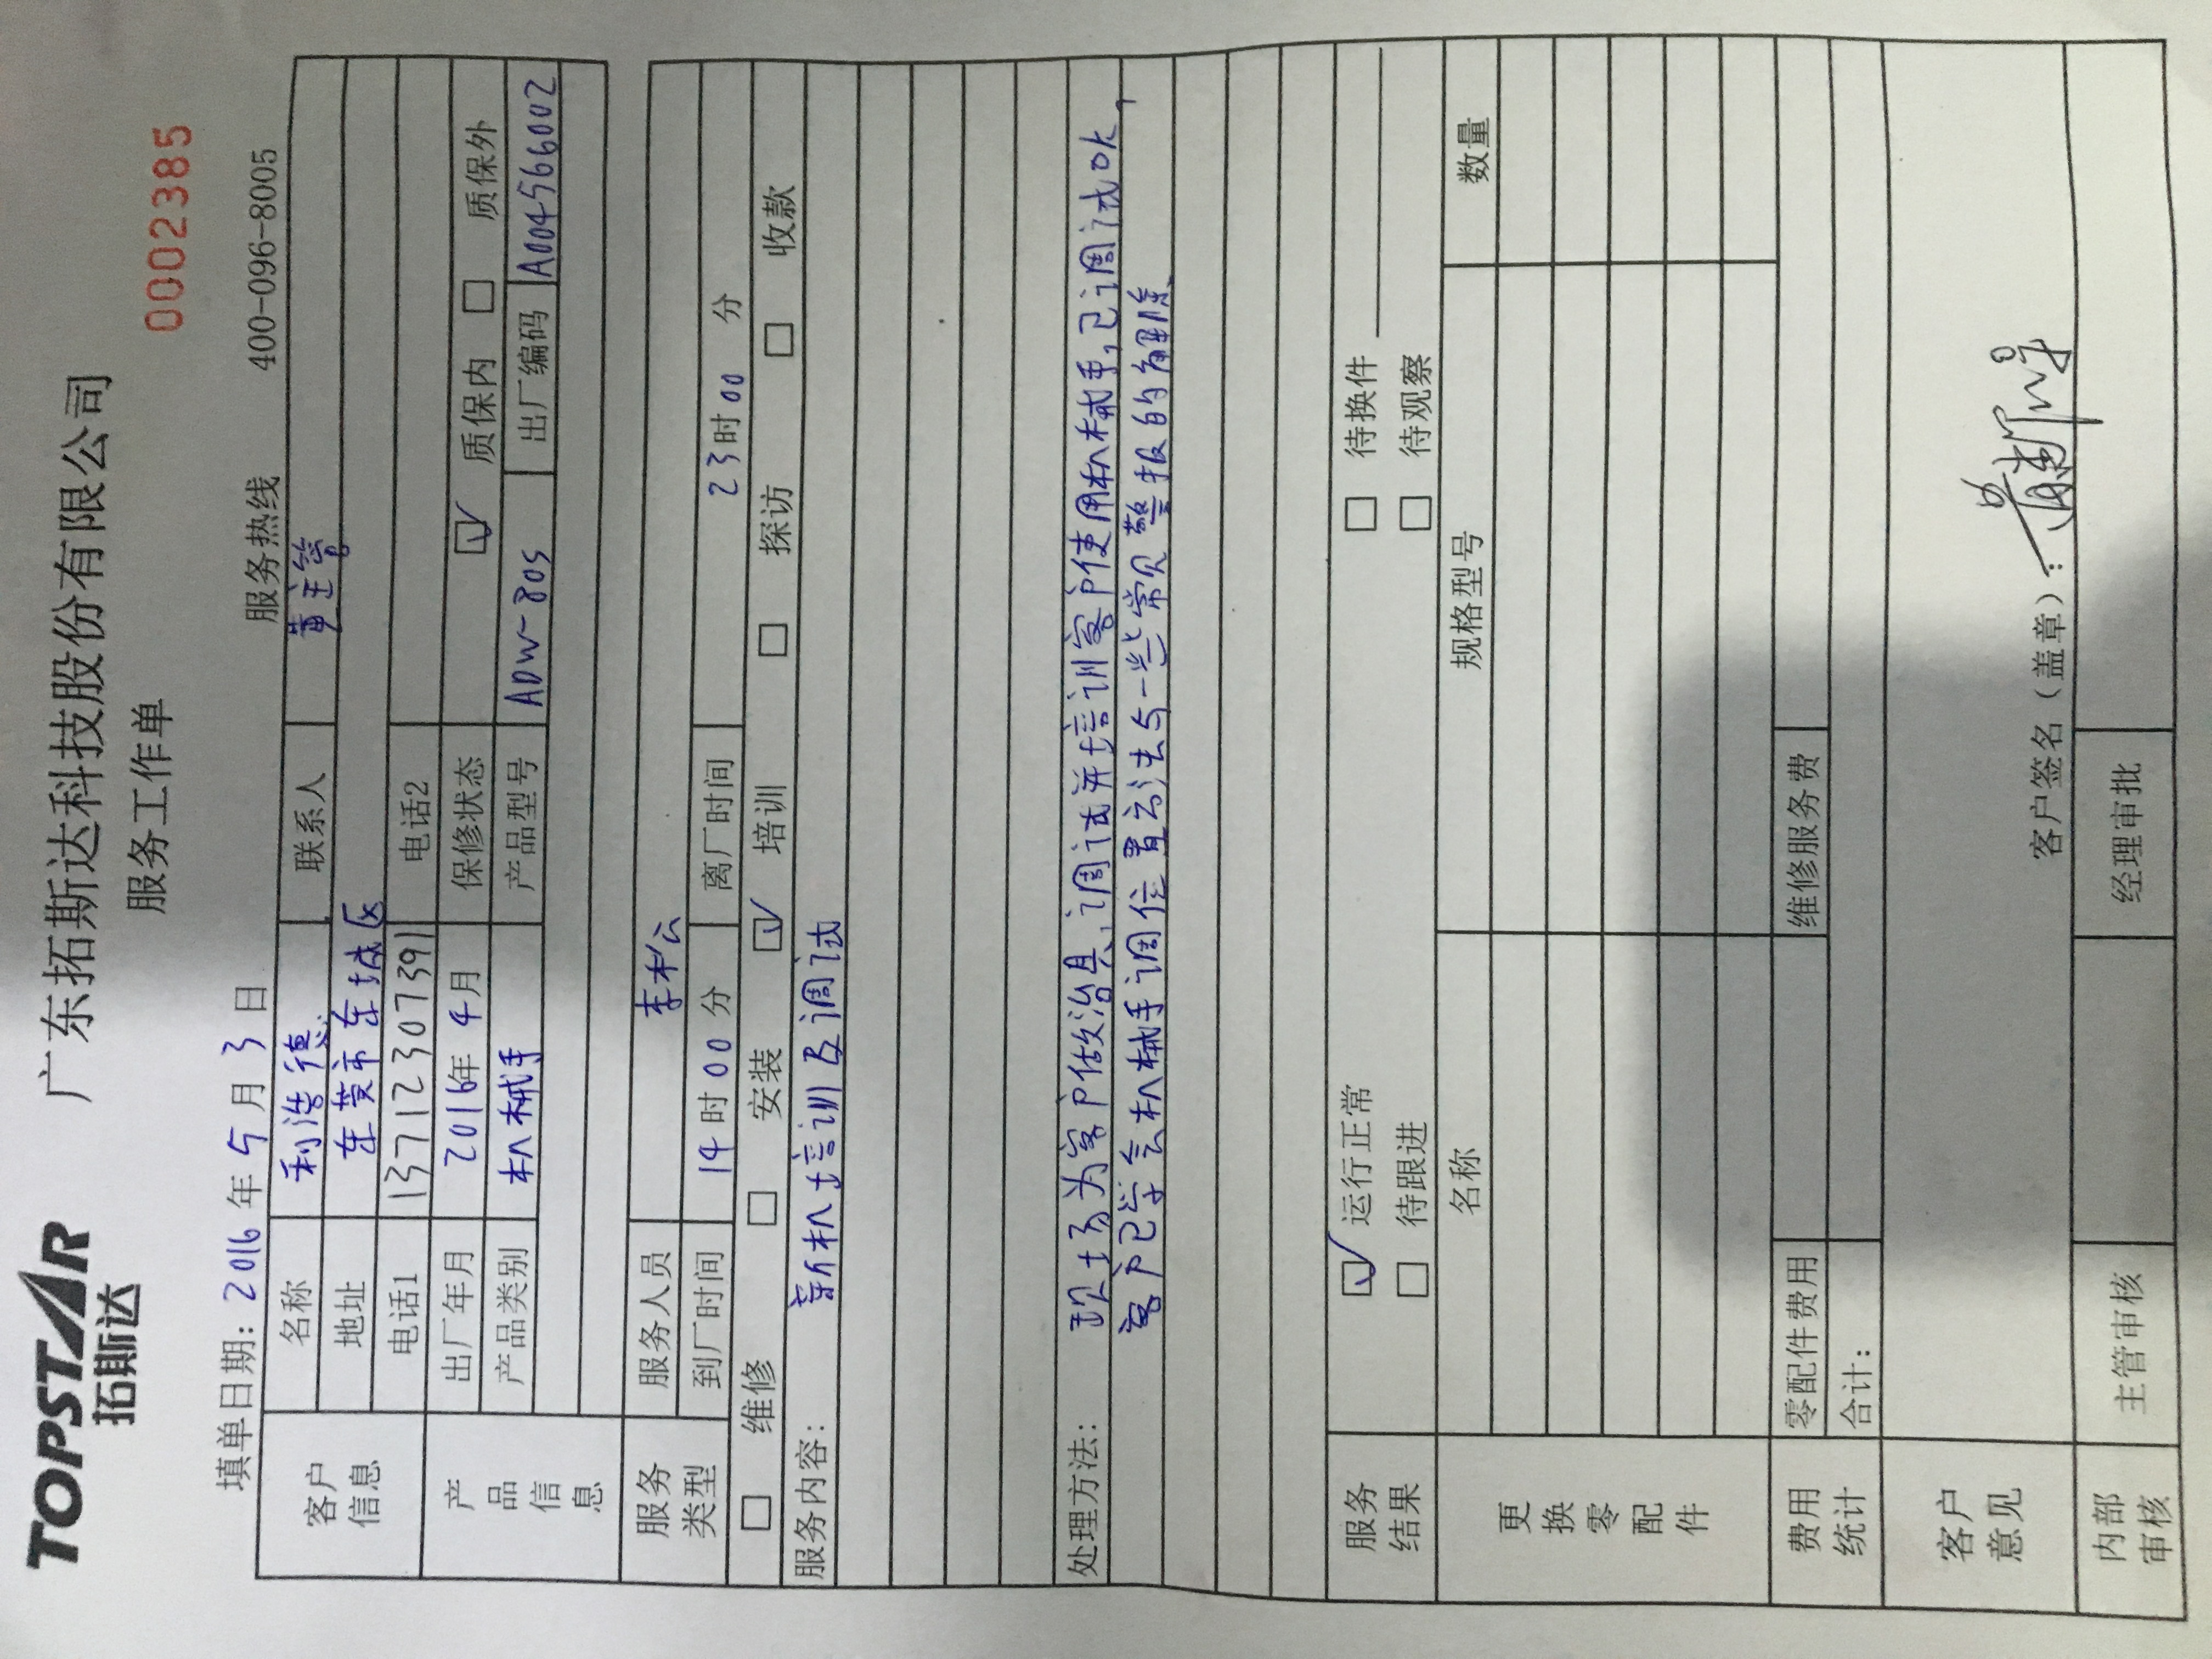 TOPSTAR 拓斯达
广东拓斯达科技股份有限公司
服务工作单
0002385
填单日期: 2016 年 5 月 3 日 服务热线 400-096-8005
客户信息
名称 利浩德 联系人 黄主管
地址 东莞市东城区
电话1 13712307391 电话2
产品信息
出厂年月 2016年4月 保修状态 ☑ 质保内 □ 质保外
产品类别 机械手 产品型号 ADW-80S 出厂编码 A004566002
服务类型
服务人员 李松云
到厂时间 14 时 00 分 离厂时间 23 时 00 分
□ 维修 □ 安装 ☑ 培训 □ 探访 □ 收款
服务内容: 新机培训及调试
处理方法: 现场为客户做治具,调试并培训客户使用机械手,已调试ok,
客户已学会机械手调位置方法与一些常见警报的解除
服务结果
☑ 运行正常 □ 待换件
□ 待跟进 □ 待观察
更换零配件
名称 规格型号 数量
费用统计
零配件费用 维修服务费
合计:
客户意见
客户签名(盖章):
内部审核 主管审核 经理审批